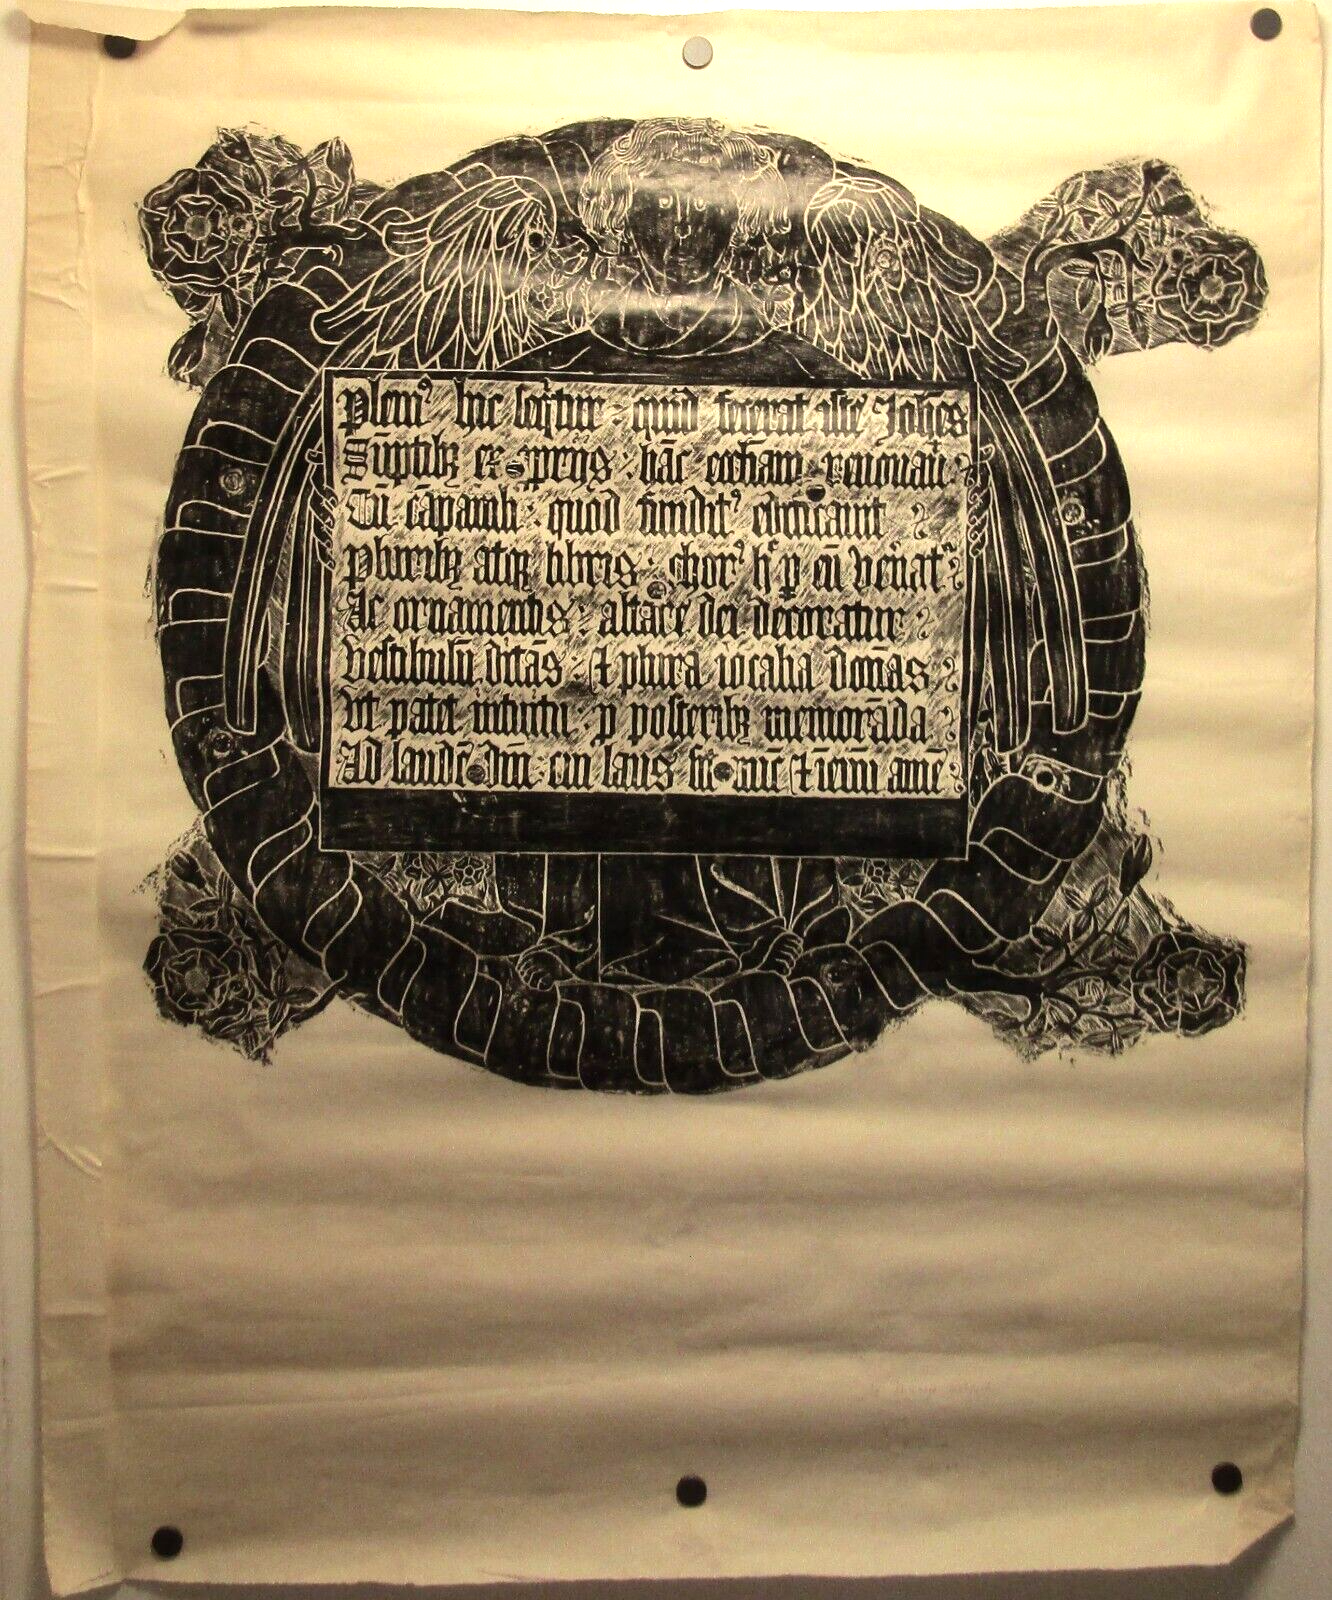 Pleni⁹ hic seq̄tur : quid fecerat iste Joh̄es
Sūptibȝ ex pp̄rijs : hāc eccliam renouauit
Tū cāpanili : quod fundit⁹ edificauit
Pluribȝ atqȝ libris : chor⁹ h' p eū ven̄at̄
Ac ornamentis : altare dei decoratur
Vestibulū ditās : & plura iocalia donās
Ut patet intuitu p posteribȝ memorāda
Ad laudē dn̄i : cui laus sit nūc & ī euū amē